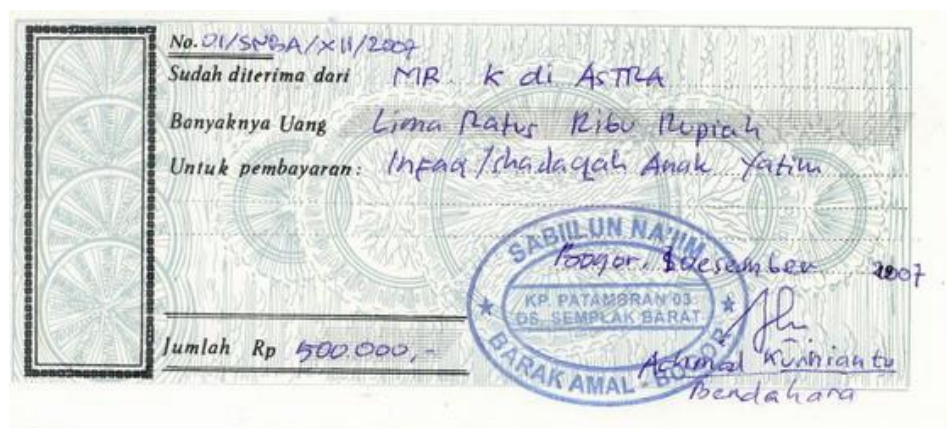 No. 01/SNBA/XII/2007
Sudah diterima dari MR. K di ASTRA
Banyaknya Uang Lima Ratus Ribu Rupiah
Untuk pembayaran: Infaq/shadaqah Anak Yatim
SABIILUN NA'IIM
Bogor, Desember 2007
KP. PATAMBRAN 03
DS. SEMPLAK BARAT
BARAK AMAL - BOGOR
Jumlah Rp 500.000,-
Kurnianto
Bendahara